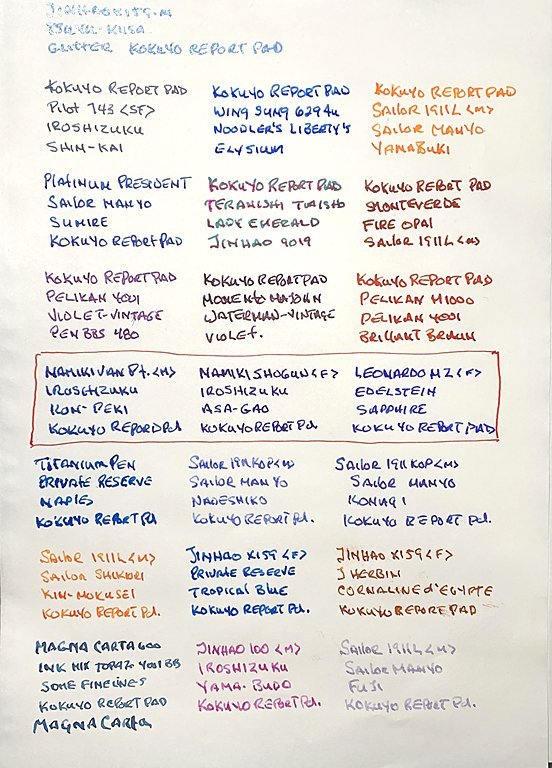 GLITTER KOKUYO REPORT PAD
KOKUYO REPORT PAD
Pilot 743 <SF>
IROSHIZUKU
SHIN-KAI
KOKUYO REPORT PAD
WING SUNG 629
NOODLER'S LIBERTY'S
ELYSIUM
KOKUYO REPORT PAD
SAILOR 1911L <M>
SAILOR MANYO
YAMABUKI
PLATINUM PRESIDENT
SAILOR MANYO
SUMIRE
KOKUYO REPORT PAD
KOKUYO REPORT PAD
TERANISHI
LADY EMERALD
JINHAO 9019
KOKUYO REPORT PAD
MONTEVERDE
FIRE OPAL
SAILOR 1911L <M>
KOKUYO REPORT PAD
PELIKAN M001
VIOLET-VINTAGE
PENBBS 480
KOKUYO REPORT PAD
MOMENTO
WATERMAN-VINTAGE
VIOLET.
KOKUYO REPORT PAD
PELIKAN M1000
PELIKAN 4001
BRILLIANT BROWN
NAMIKI VAN Pt. <M>
IROSHIZUKU
KON-PEKI
KOKUYO REPORT Pd
NAMIKI SHOGUN <F>
IROSHIZUKU
ASA-GAO
KOKUYO REPORT Pd.
LEONARDO MZ <F>
EDELSTEIN
SAPPHIRE
KOKUYO REPORT PAD
TITANIUM PEN
PRIVATE RESERVE
NAPLES
KOKUYO REPORT Pd
SAILOR 1911 KOP <M>
SAILOR MANYO
NADESHIKO
KOKUYO REPORT Pd.
SAILOR 1911 KOP <M>
SAILOR MANYO
KONAGI
KOKUYO REPORT Pd.
SAILOR 1911L <M>
SAILOR SHIKIORI
KIN-MOKUSEI
KOKUYO REPORT Pd.
JINHAO X159 <F>
PRIVATE RESERVE
TROPICAL BLUE
KOKUYO REPORT Pd.
JINHAO X159 <F>
J HERBIN
CORNALINE d'EGYPTE
KOKUYO REPORT PAD
MAGNA CARTA 600
INK MIX TOPAZ
SOME FINE LINES
KOKUYO REPORT PAD
MAGNA CARTA
JINHAO 100 <M>
IROSHIZUKU
YAMA-BUDO
KOKUYO REPORT Pd.
SAILOR 1911L <M>
SAILOR MANYO
FUJI
KOKUYO REPORT Pd.